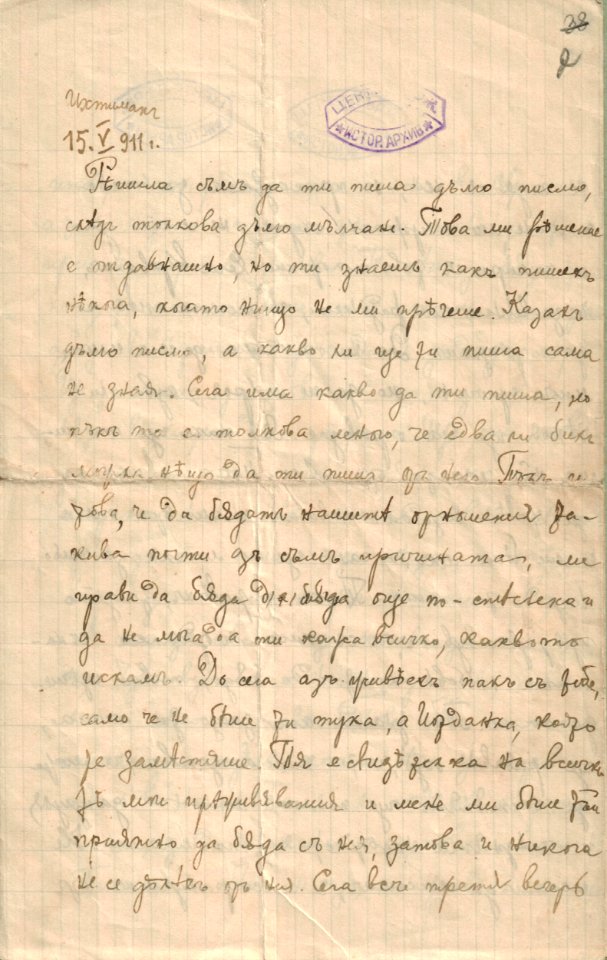 38
2
Ихтиманъ
15. V 911 г.
ЦЕН
ИСТОР. АРХИВ
Рѣшила съмъ да ти пиша дълго писмо,
слѣдъ толкова дълго мълчане. Това ми рѣшение
е отдавнашно, но ти знаешъ какъ пишехъ
нѣкога, когато нищо не ми прѣчеше. Казахъ
дълго писмо, а какво ли ще ти пиша сама
не зная. Сега има какво да ти пиша, но
пъкъ то е толкова много, че едва ли бихъ
могла нѣщо да ти пиша отъ него. Пъкъ и
това, че да бѫдатъ нашитѣ отношения та-
кива почти азъ съмъ причината, ме
прави да бѫда да бѫда още по-стѣснена и
да не мога да ти кажа всичко, каквото
искамъ. До сега азъ живѣехъ пакъ съ тебе,
само че не бѣше ти тука, а Йорданка, която
те замѣстяше. Тя е свидѣтелка на всички
тѣ мои прѣживявания и мене ми бѣше тъй
приятно да бѫда съ нея, затова и никога
не се дѣлѣхъ отъ нея. Сега вече трета вечерь